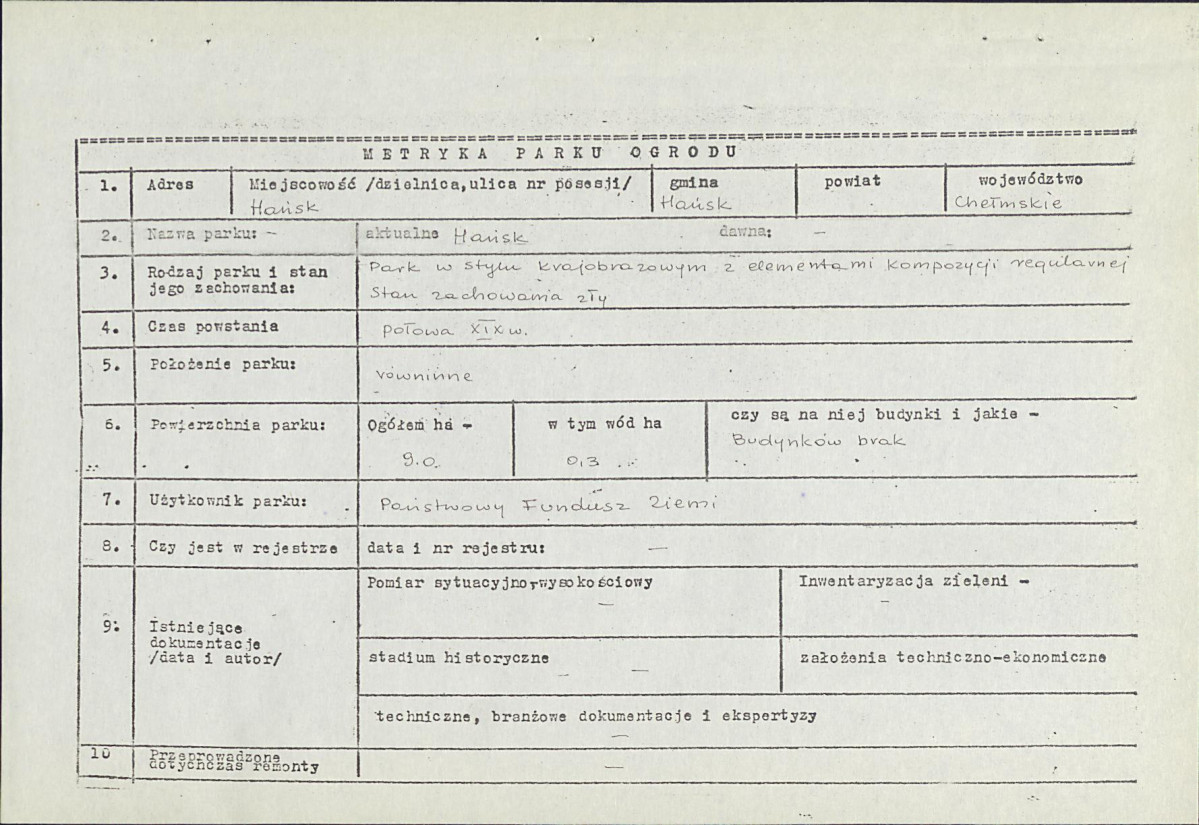 METRYKA PARKU OGRODU
1. Adres Miejscowość /dzielnica,ulica nr posesji/ gmina powiat województwo
Hańsk Hańsk Chełmskie
2. Nazwa parku: – aktualne Hańsk dawna: –
3. Rodzaj parku i stan Park w stylu krajobrazowym z elementami kompozycji regularnej
jego zachowania: Stan zachowania zły
4. Czas powstania połowa XIX w.
5. Położenie parku: równinne
6. Powierzchnia parku: Ogółem ha – w tym wód ha czy są na niej budynki i jakie –
9.0 0,3 Budynków brak
7. Użytkownik parku: Państwowy Fundusz Ziemi
8. Czy jest w rejestrze data i nr rejestru: —
Pomiar sytuacyjno-wysokościowy Inwentaryzacja zieleni –
— –
9. Istniejące
dokumentacje
/data i autor/ stadium historyczne — założenia techniczno-ekonomiczne
—
techniczne, branżowe dokumentacje i ekspertyzy
—
10 Przeprowadzone
dotychczas remonty —